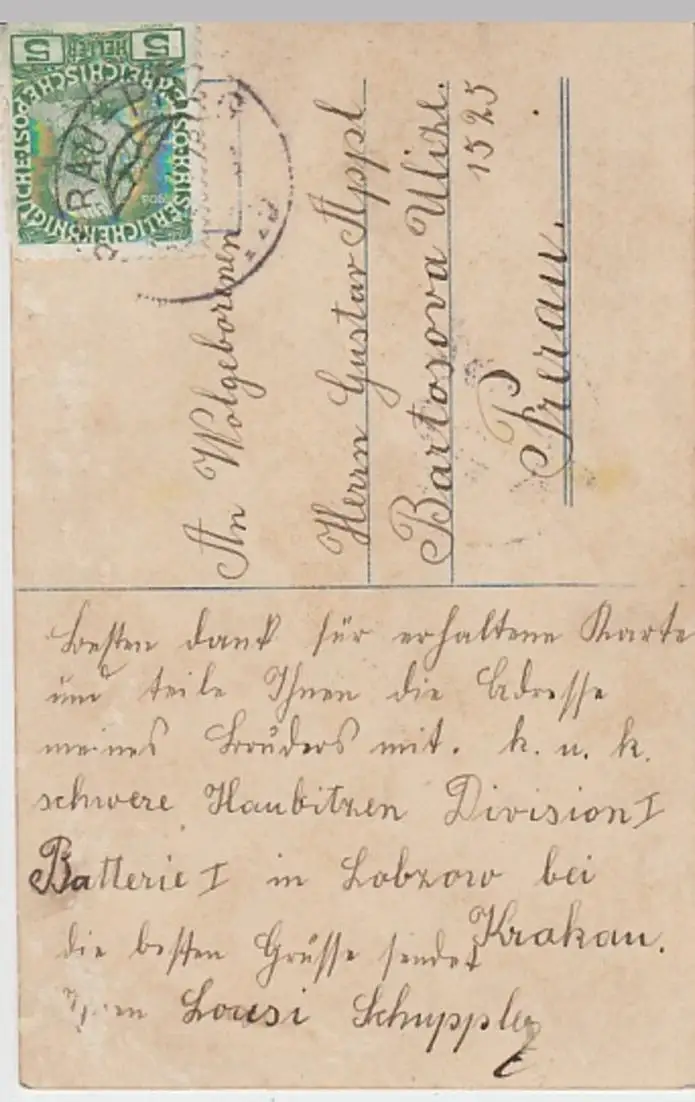 5 HELLER 5
KAISERLICHE KÖNIGL
REICHISCHE POST
RAU
An Wolgeborenen
Herrn Gustav Appl
Bartosova Ulize.
1525
Prerau.
Besten dank für erhaltene Karte
und teile Ihnen die Adresse
meines Bruders mit. k. u. k.
schwere Haubitzen Division I
Batterie I in Lobzow bei
Krakau.
die besten Grüsse sendet
Lousi Schuppler